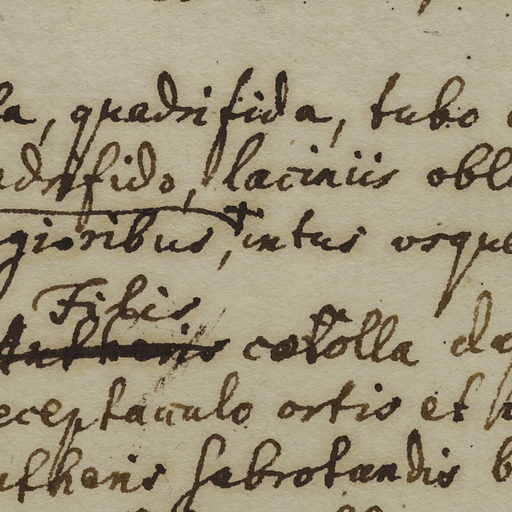 la, quadrifida, tubo
adrifido, laciniis obl
gioribus, intus usque
Filis
Antheris corolla
eceptaculo ortis et
ntheris subrotundis